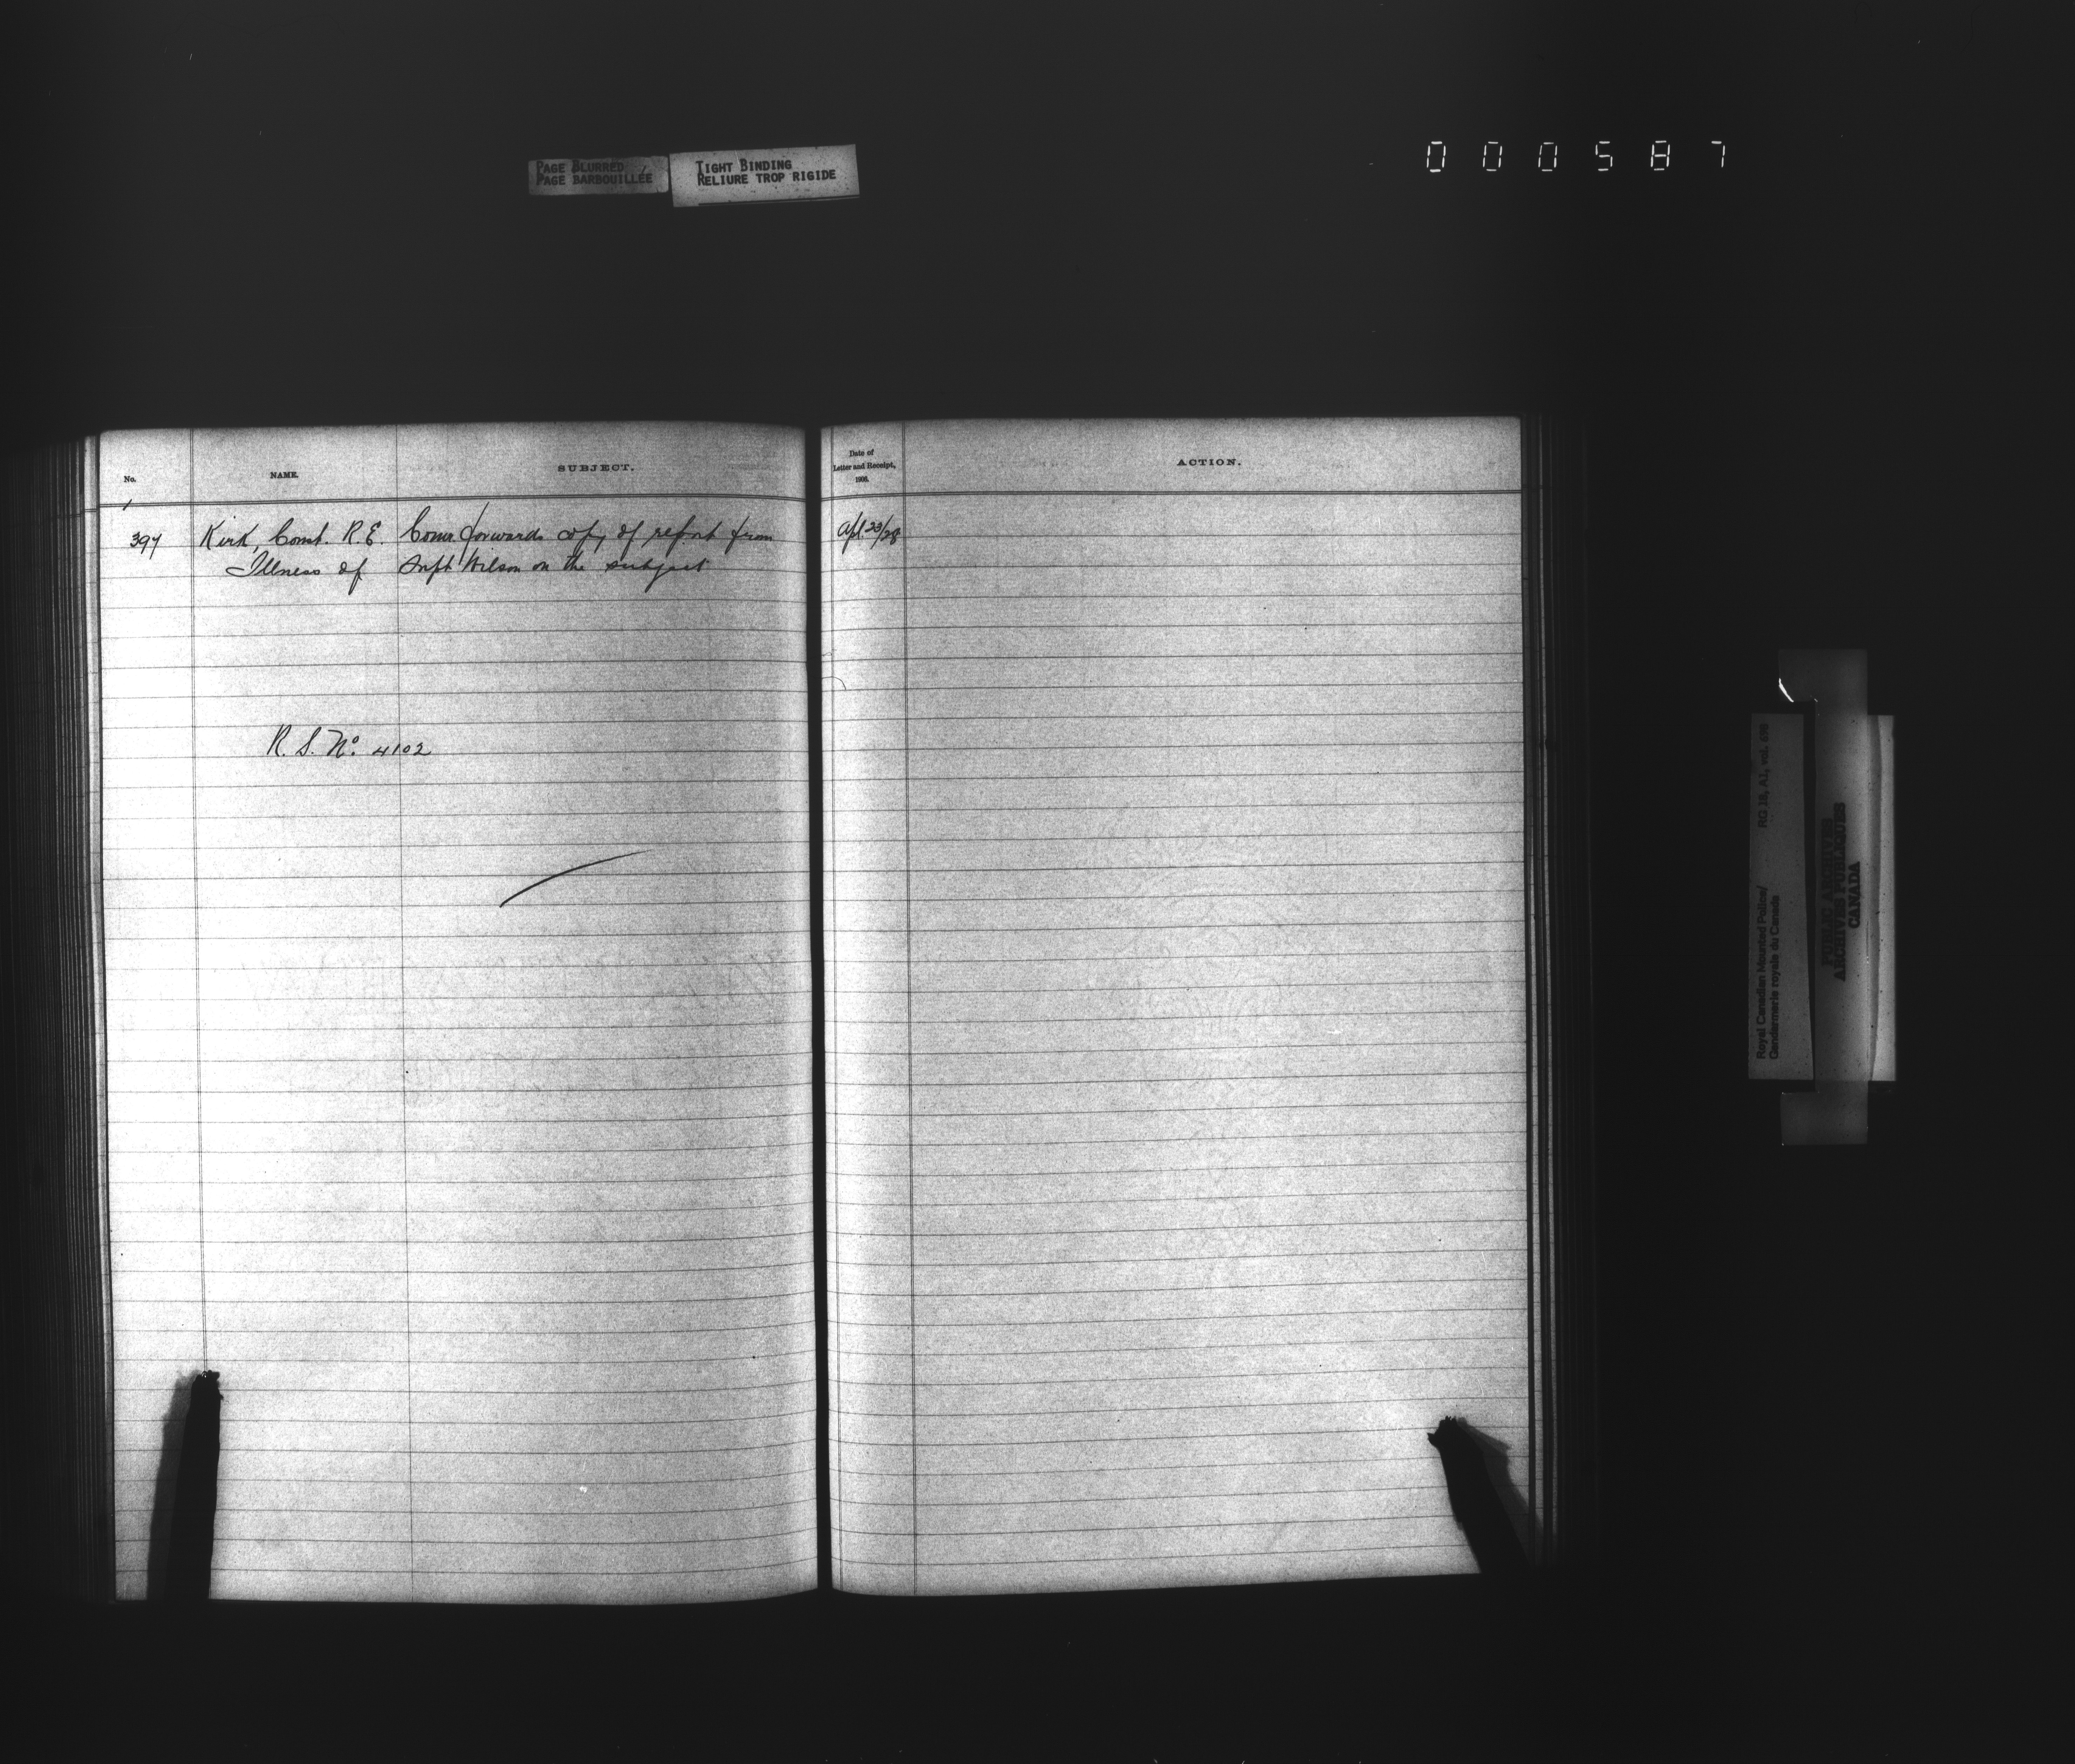 PAGE BLURRED
PAGE BARBOUILLÉE
TIGHT BINDING
RELIURE TROP RIGIDE
000587
No.
NAME.
SUBJECT.
Date of
Letter and Receipt,
1906.
ACTION.
397 Kirk, Const. R.E. Comr. forwards copy of report from Apl. 23/28
Illness of Supt Wilson on the subject
R. S. No. 4102
Royal Canadian Mounted Police/ RG 18, A1, vol. 698
Gendarmerie royale du Canada
PUBLIC ARCHIVES
ARCHIVES PUBLIQUES
CANADA